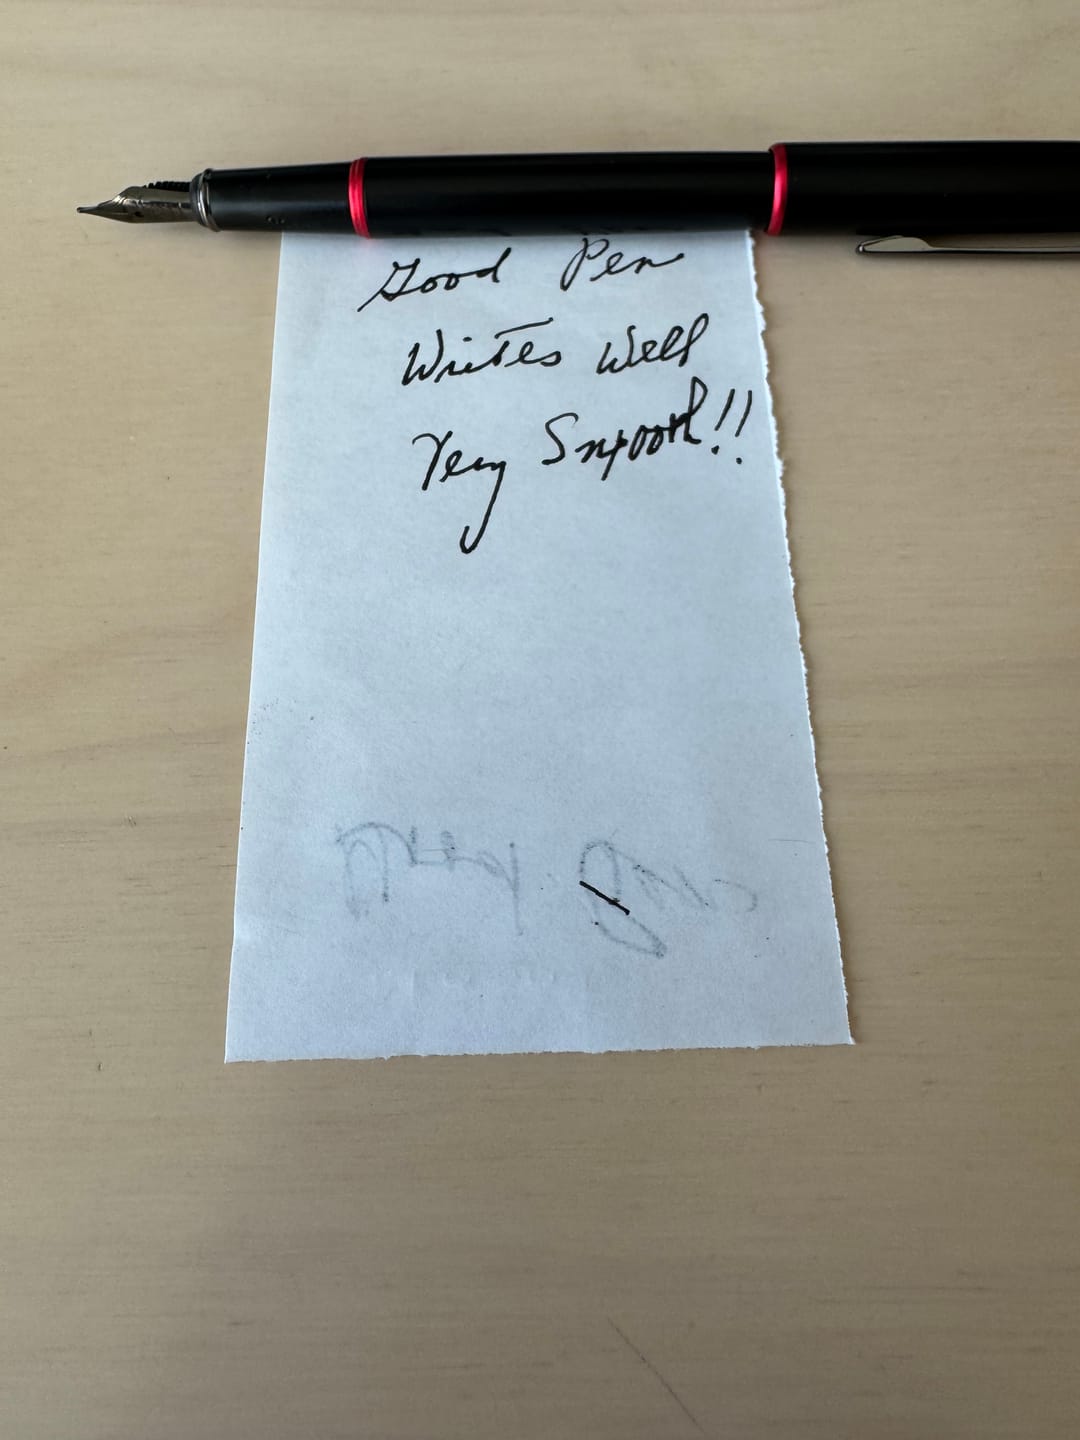 Good Pen
Writes Well
Very Smooth!!